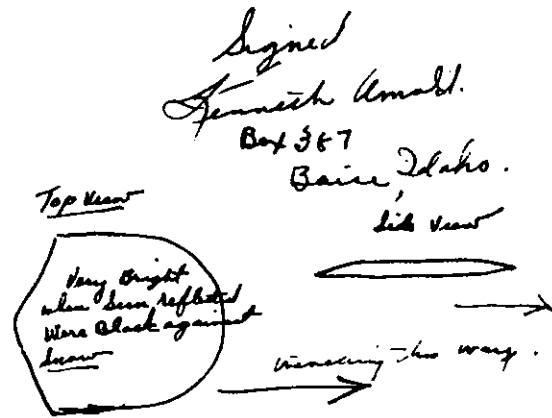 Signed
Kenneth Arnold.
Box 387
Boise, Idaho.
Top View
Side View
Very Bright
when Sun reflected
Were Black against
Snow
this way.